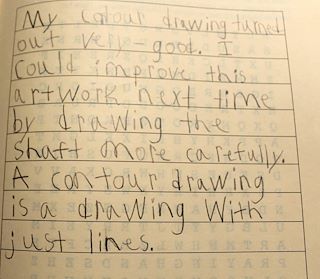 My colour drawing turned
out very good. I
could improve this
artwork next time
by drawing the
shaft more carefully.
A contour drawing
is a drawing with
just lines.